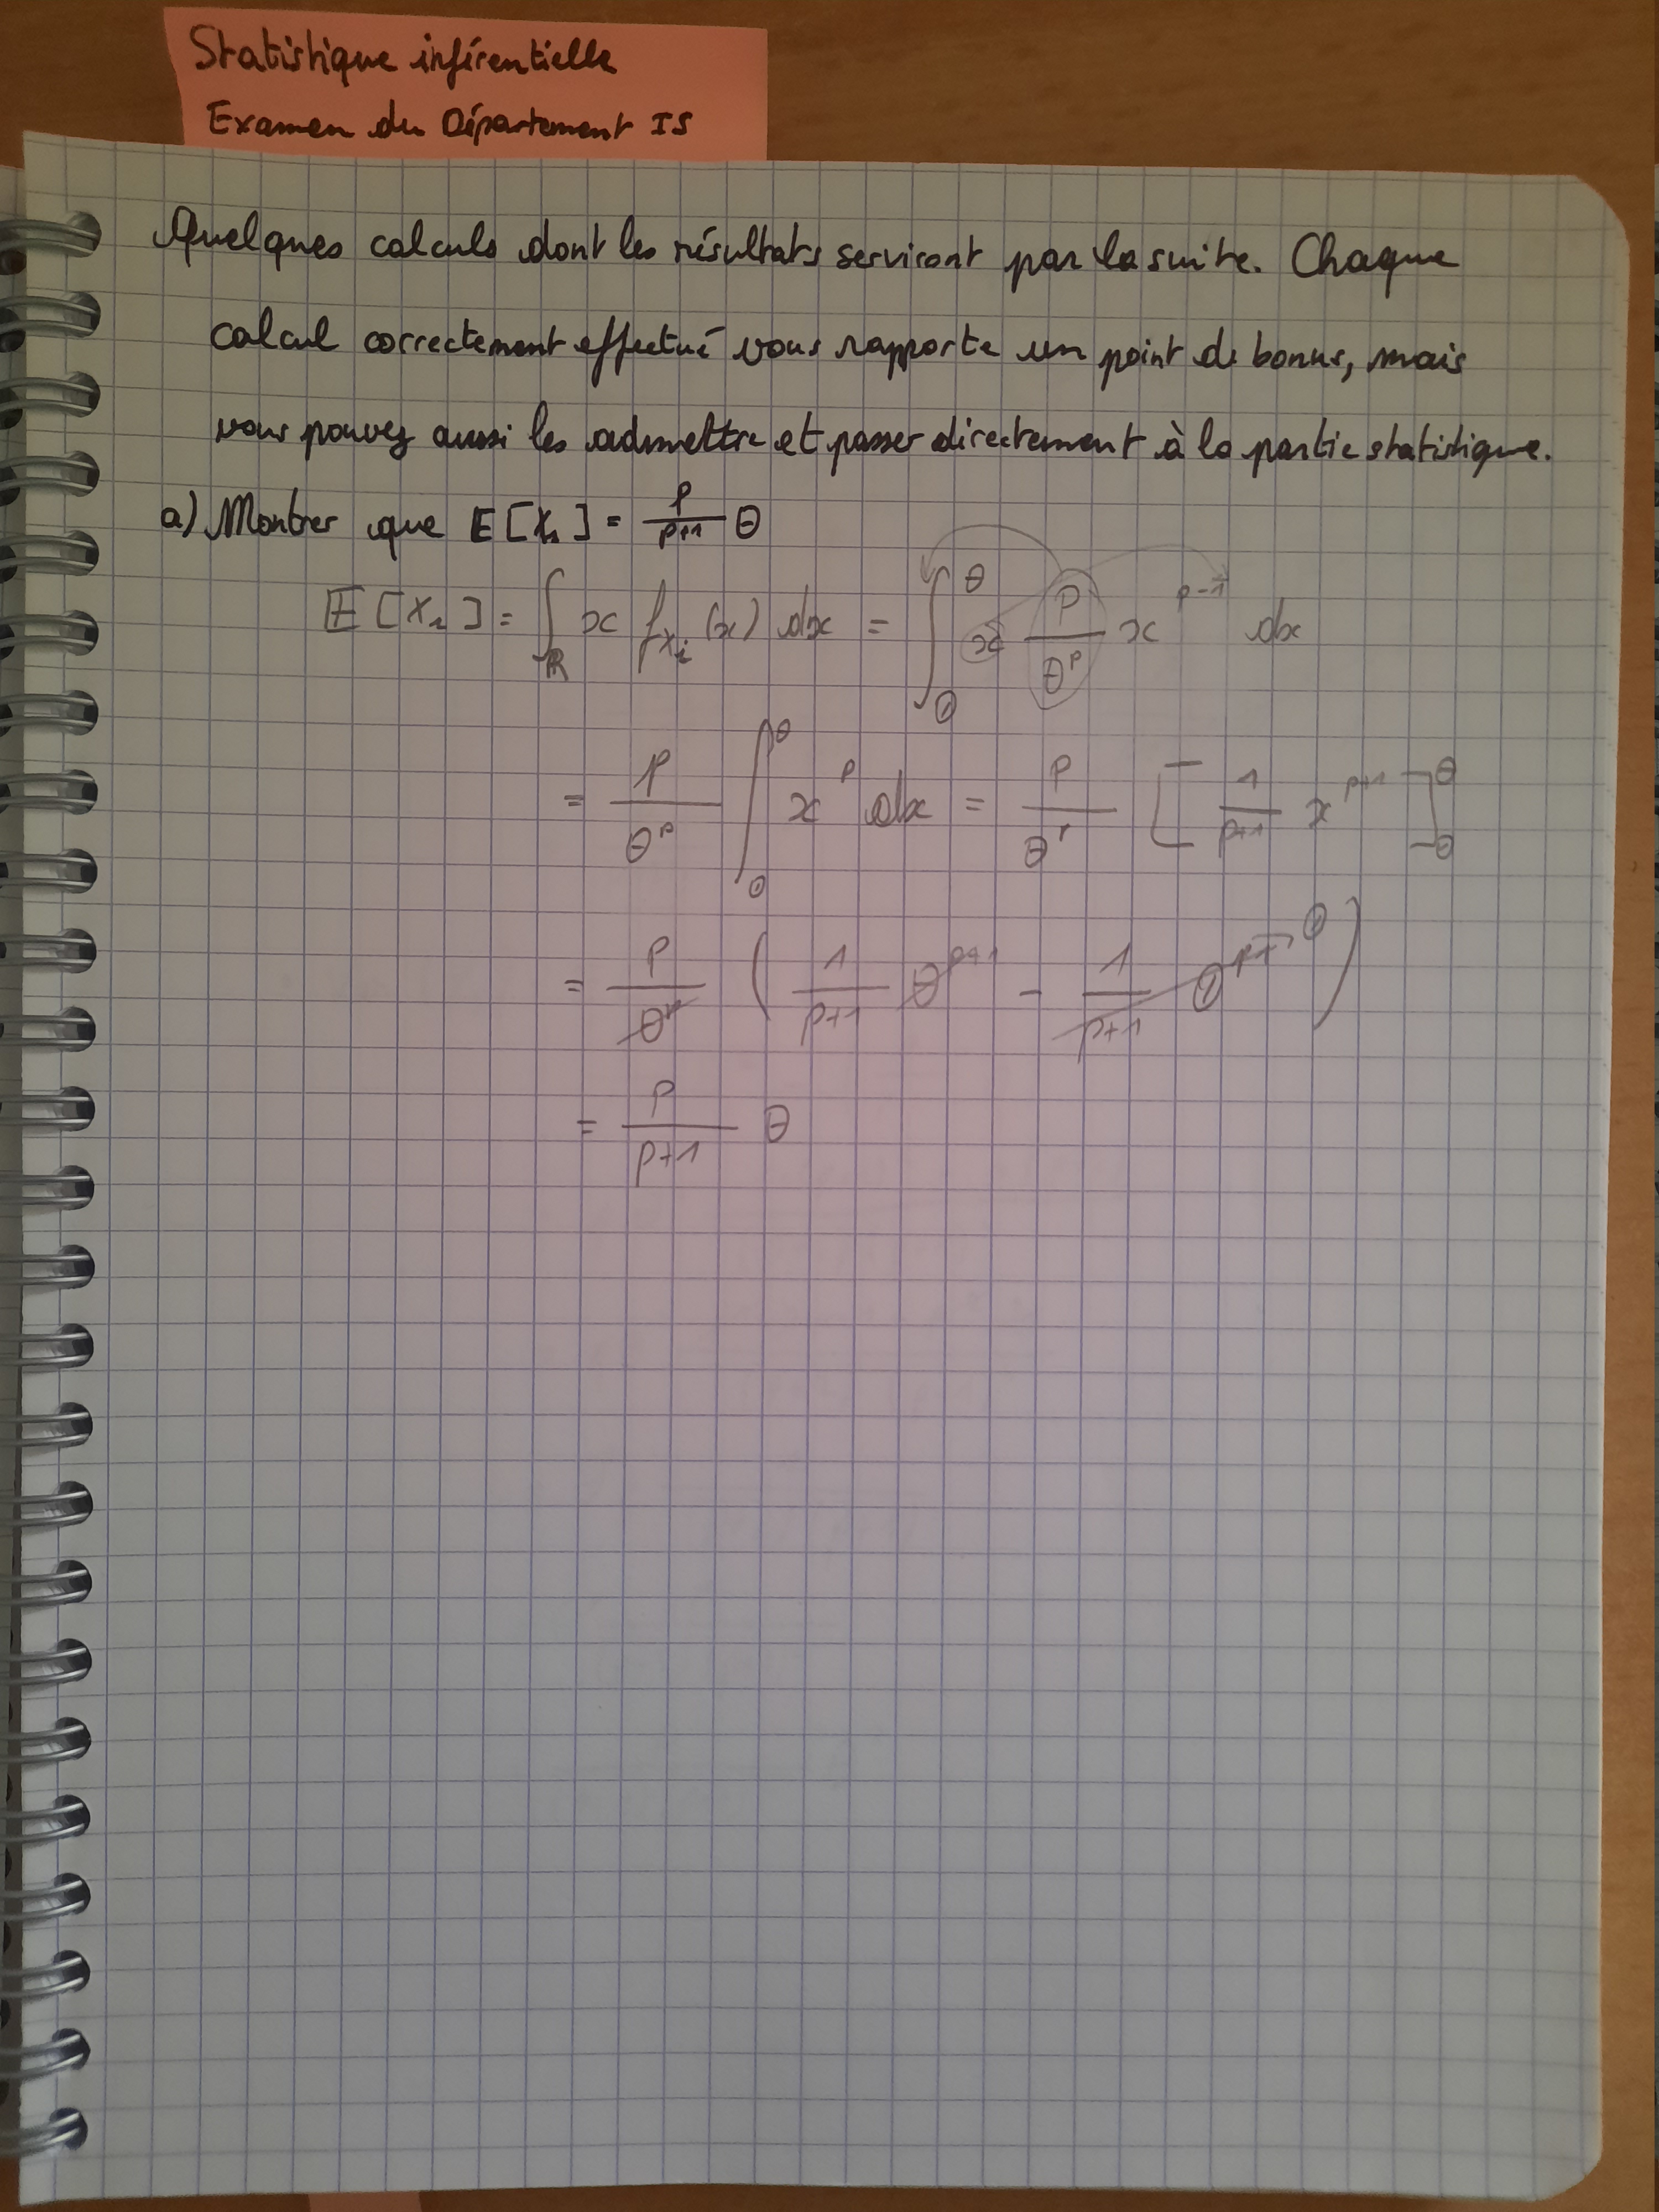 Statistique inférentielle
Examen du Département IS
Quelques calculs dont les résultats serviront par la suite. Chaque
calcul correctement effectué vous rapporte un point de bonus, mais
vous pouvez aussi les admettre et passer directement à la partie statistique.
a) Montrer que E[X₁] = p/(p+1) θ
E[X₁] = ∫_ℝ x f_{X_i}(x) dx = ∫_0^θ x p/θ^p x^{p-1} dx
= p/θ^p ∫_0^θ x^p dx = p/θ^p [1/(p+1) x^{p+1}]_0^θ
= p/θ^p (1/(p+1) θ^{p+1} - 1/(p+1) 0^{p+1} 0)
= p/(p+1) θ